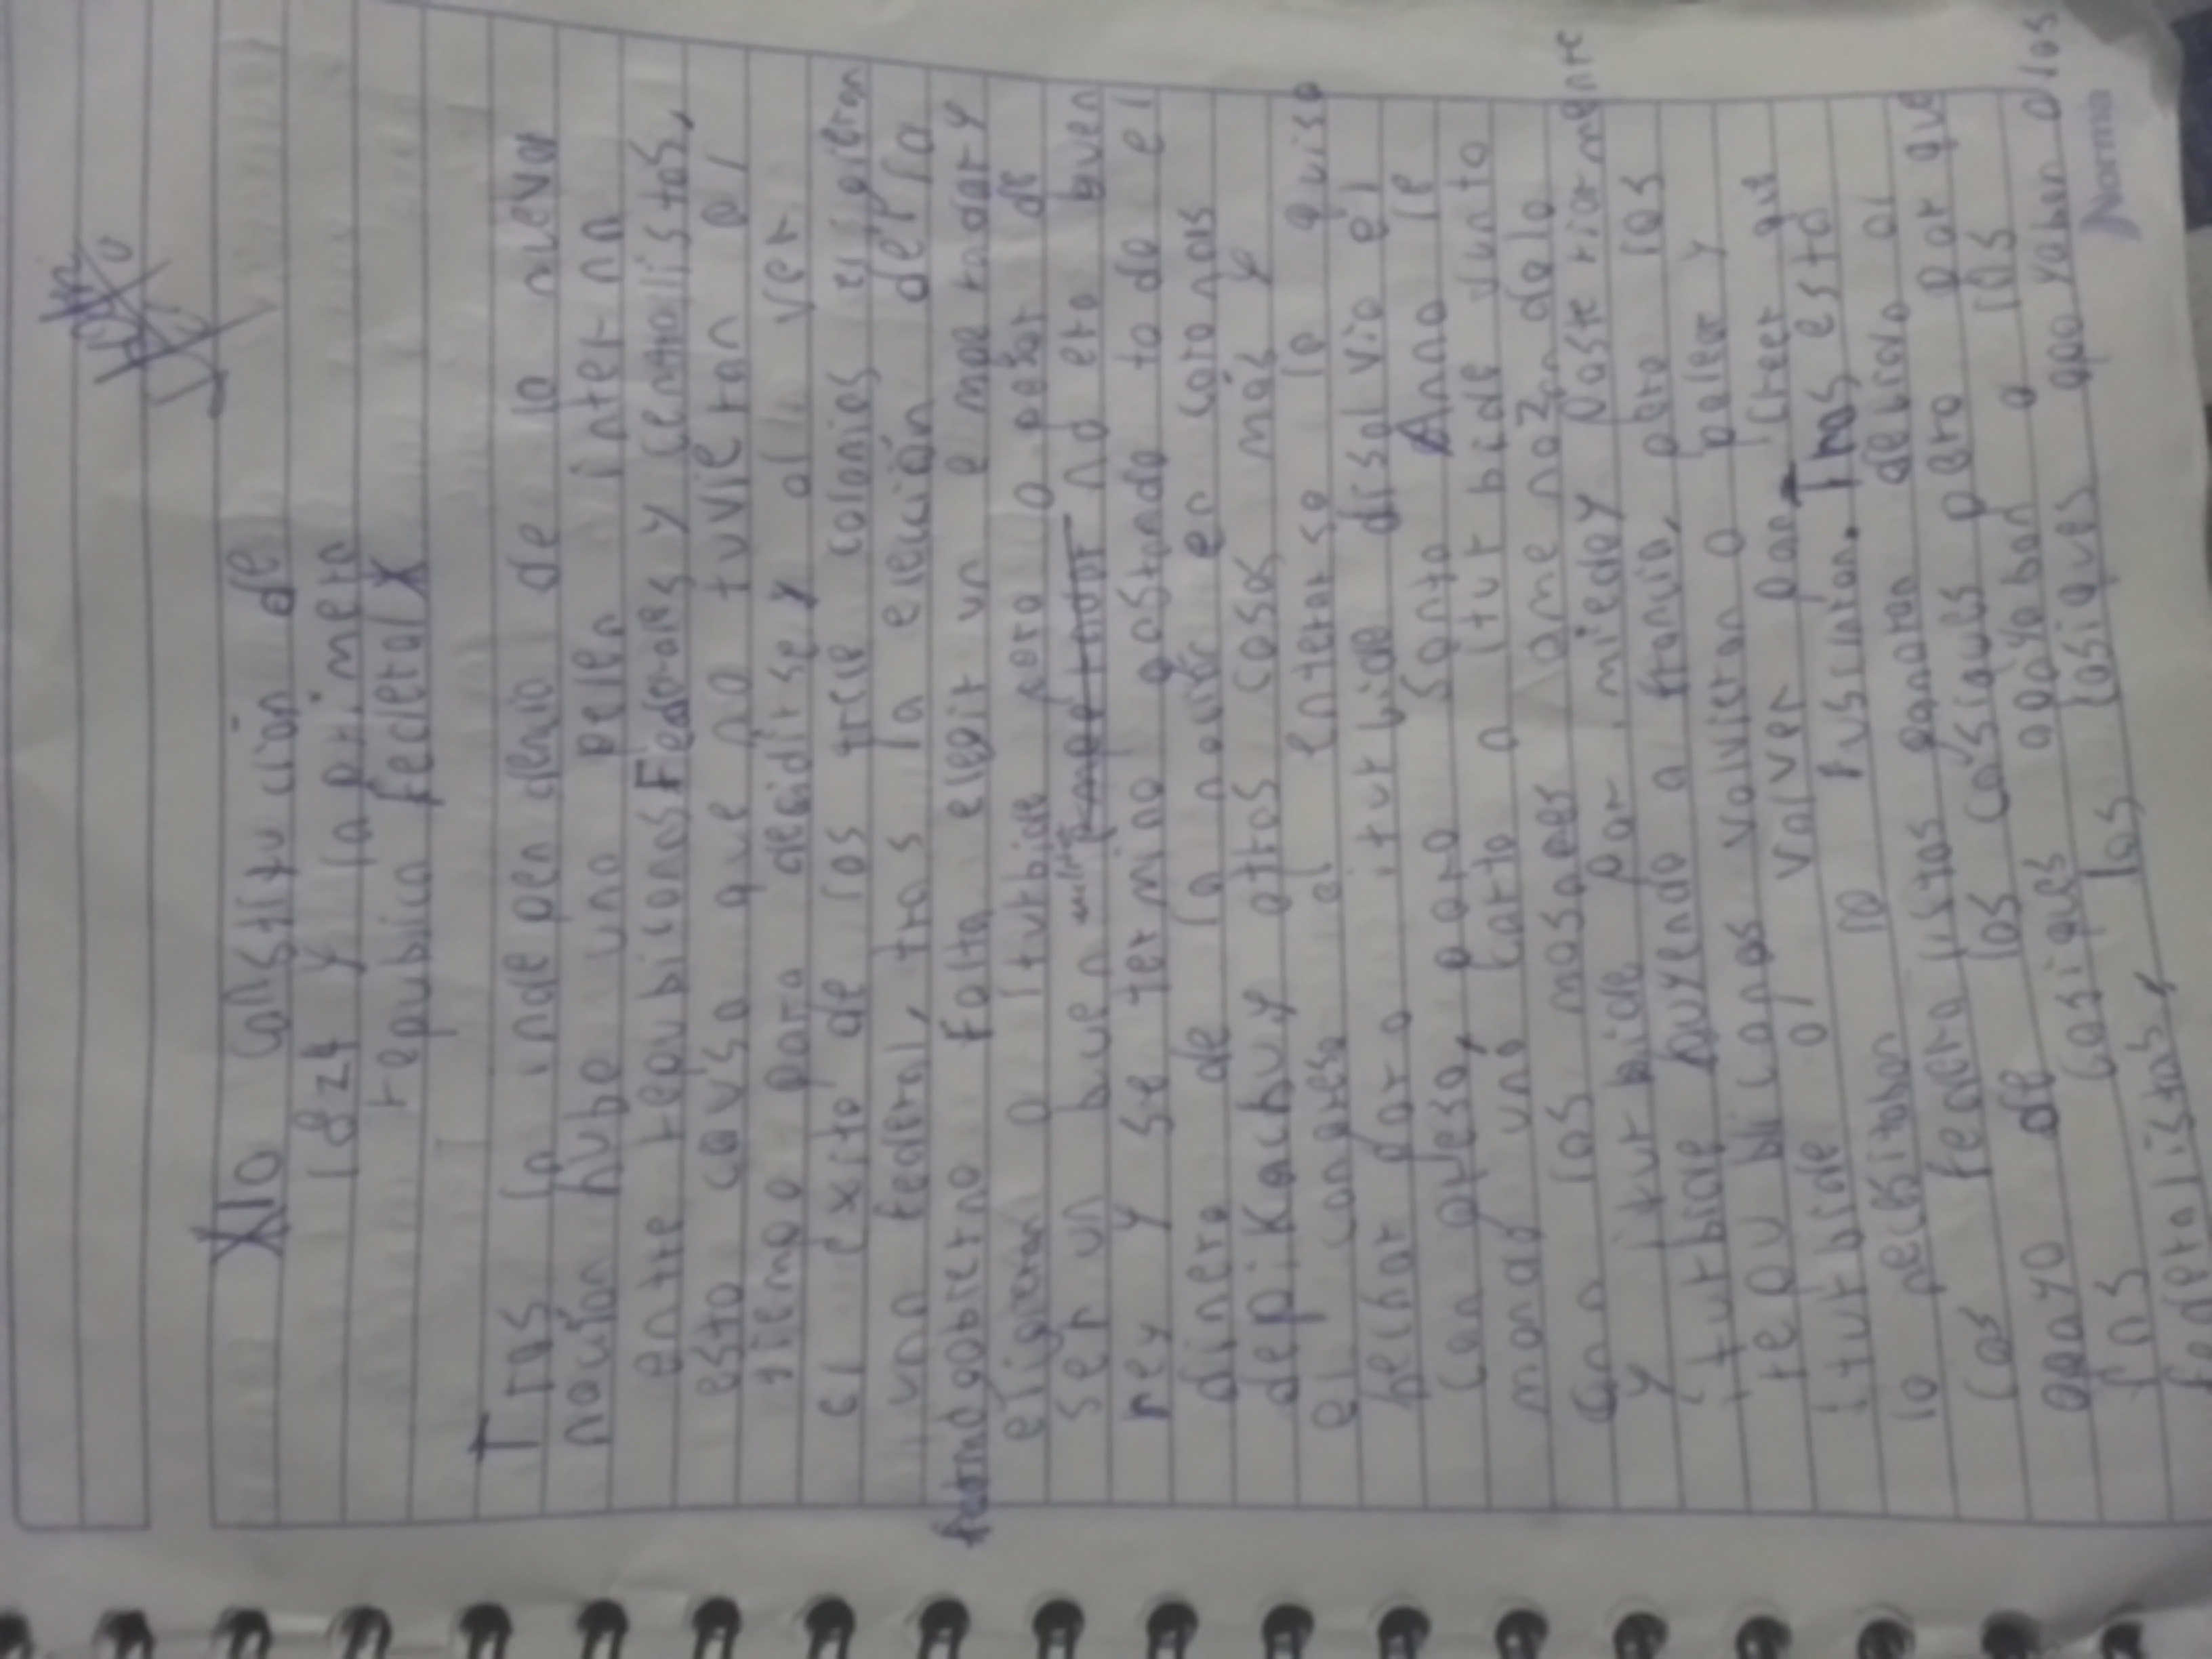 X10 constitución de
1824 y la primera
republica federal X
Tras la independencia de la nueva
nación hube una pelea interna
entre republicanos Federales y centralistas,
esto causo que no tuvieran el
tiempo para decidirse y al ver
el exito de las trece colonies eligieron
una federal, tras la elección de la
forma gobierno falta elegir un emperador y
eligieron a Iturbide pero a pesar de
ser un buen militar no era buen
rey y se termino gastando todo el
dinero de la nación en coronas
de pikachu y otras cosas más y
el congreso al enterarse lo quiso
hechar pero iturbide disolvio el
congreso, pero Santa Anna le
mando una carta a iturbide junto
con los masones amenazandolo
y iturbide por miedo y posteriormente
iturbide huyendo a Italia, pero los
republicanos volvieron a pelear y
iturbide al volver por creer que
lo necesitaban lo fusilaron. Tras esto
los federalistas ganaron debido al
apoyo de los casiques pero por que
los casiques apoyaban a los
federalistas, los casiques apoyaban a los
Norma